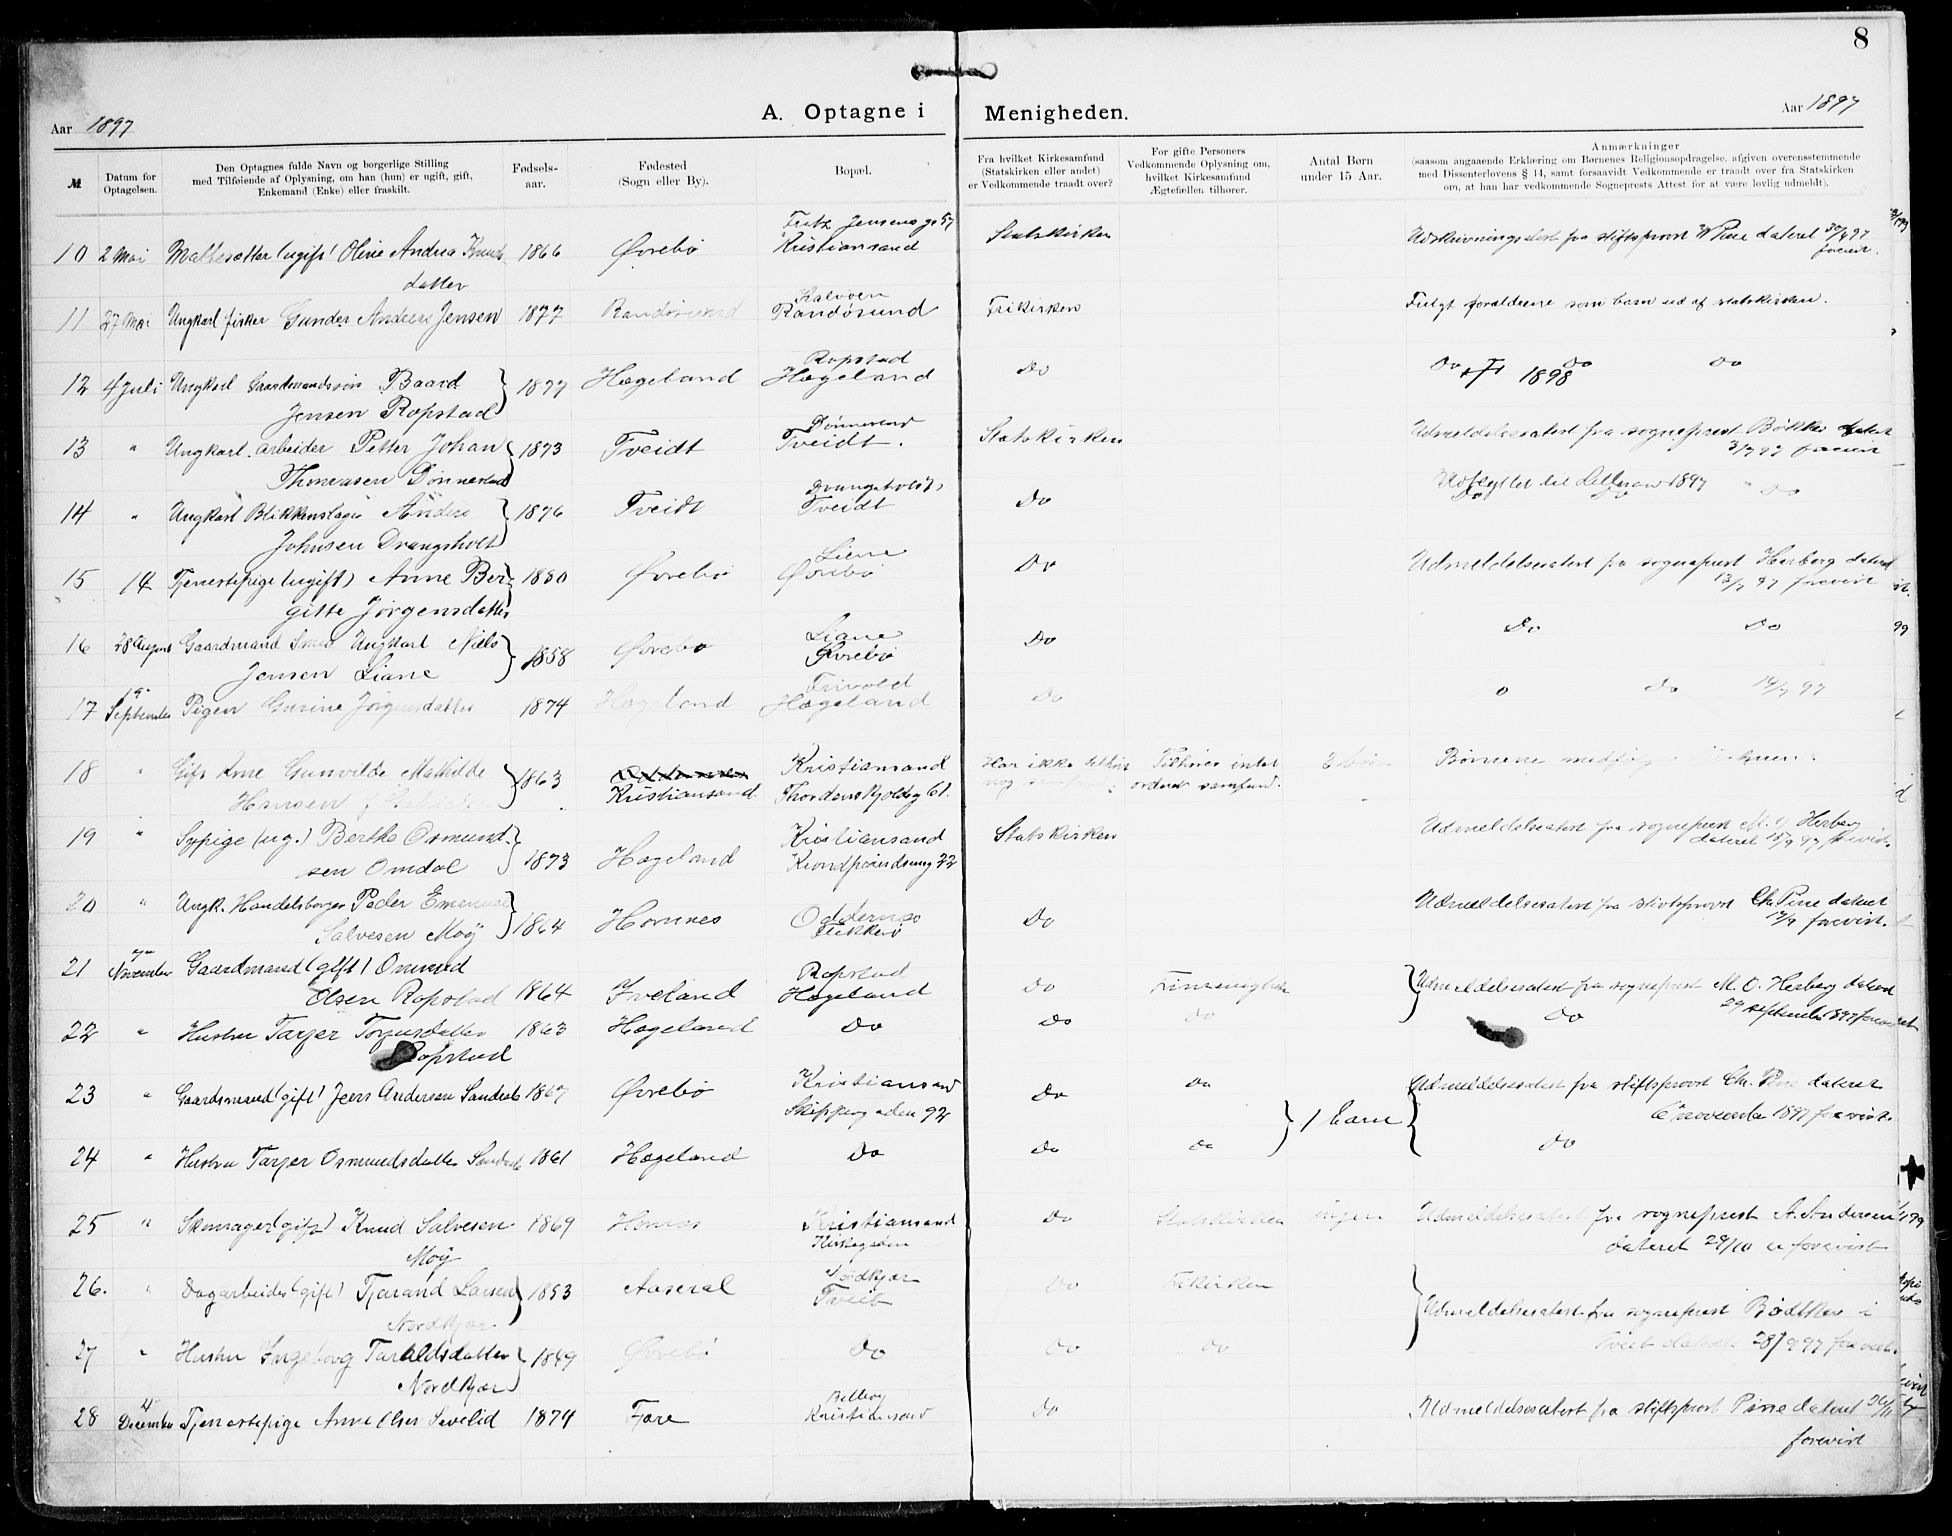 8
A. Optagne i Menigheden.
Aar 1897
Aar 1897
№
Datum for Optagelsen.
Den Optagnes fulde Navn og borgerlige Stilling
med Tilføiende af Oplysning, om han (hun) er ugift, gift,
Enkemand (Enke) eller fraskilt.
Fødsels-
aar.
Fødested
(Sogn eller By).
Bopæl.
Fra hvilket Kirkesamfund
(Statskirken eller andet)
er Vedkommende traadt over?
For gifte Personers
Vedkommende Oplysning om,
hvilket Kirkesamfund
Ægtefællen tilhører.
Antal Børn
under 15 Aar.
Anmærkninger
(saasom angaaende Erklæring om Børnenes Religionsopdragelse, afgiven overensstemmende
med Dissenterlovens § 14, samt forsaavidt Vedkommende er traadt over fra Statskirken
om, at han har vedkommende Sogneprests Attest for at være lovlig udmeldt).
10 2 Mai (ugift) Oline Andrea Knuds 1866 Øvrebø Kristiansand Statskirken fra stiftsprovst Pine dateret 30/4 97
datter forevist.
Kalvøen
11 27 Mai Ungkarl fisker Gunder Andreas Jensen 1877 Randøsund Randøsund Frikirken Fulgt forældrene som barn ud af statskirken.
Ropstad
12 4 Juli Ungkarl Gaardmandssøn Baard 1877 Hægeland Hægeland Do Do Do Do
Jensen Ropstad 1898
Dønnestad
13 " Ungkarl arbeider Petter Johan 1873 Tveidt Tveidt. Statskirken Udmeldelsesattest fra sogneprest dateret
Thomassen Dønnestad 3/7 97 forevist
Udflyttet til 1897
Drangsholt
14 " Ungkarl Blikkenslager Anders 1876 Tveidt Tveidt Do Do Do Do
Johnsen Drangsholt
Liene
15 14 Tjenestepige (ugift) Anne Ber- 1880 Øvrebø Øvrebø Do Udmeldelsesattest fra sogneprest Herberg dateret
gitte Jørgensdatter 13/7 97 forevist
Liane
16 28 August Gaardmand Ungkarl Nils 1858 Øvrebø Øvrebø Do Do Do
Jensen Liane
Frivold
17 September Pigen Gurine Jørgensdatter 1874 Hægeland Hægeland Do Do Do 14/7 97
18 " Gift Kone Gunvilde Mathilde 1863 Kristiansand Har ikke tilhørt Tilhører intet Børnene
Hansen Kristiansand Thordenskjoldsg 61. ordnet samfund.
19 " Sypige (ug.) Berthe Osmund- 1873 Hægeland Kristiansand Statskirken Udmeldelsesattest fra sogneprest M. O. Herberg
sen Omdal 22 dateret 15/9 97 forevist.
20 " Ungk. Handelsborger Peder Emanuel 1864 Hornnes Oddernes Do Udmeldelsesattest fra stiftsprovst Chr. Pine dateret
Salvesen Moÿ Flekkerø 17/9 forevist.
21 November Gaardmand (gift) Osmund Ropstad
Olsen Ropstad 1864 Iveland Hægeland Do Udmeldelsesattest fra sogneprest M. O. Herberg dateret
29 september 1897 forevist
22 " Hustru Tarjer Torjusdatter 1863 Hægeland Do Do Do Do
Ropstad
23 " Gaardmand (gift) Jens Andersen 1867 Øvrebø Kristiansand Do Do Udmeldelsesattest fra stiftsprovst Chr. Pine dateret
Skippergaden 92 1 barn 6 november 1897 forevist.
24 " Hustru Tarjer Osmundsdatter 1861 Hægeland Do Do Do Do
25 " Skomager (gift) Knud Salvesen 1869 Hornnes Kristiansand Do Statskirken ingen Udmeldelsesattest fra sogneprest A. Andersen
Moÿ Kirkegaden dateret 29/10 er forevist
Nordkjær
26. " Dagarbeider (gift) Tjerand Larsen 1853 Aaseral Tveit Do Frikirken Udmeldelsesattest fra sogneprest Bødtker i
Nordkjær Tveit dateret 28/9 97 forevist
27 " Hustru Ingeborg Taraldsdatter 1849 Øvrebø Do Do Do
Nordkjær
28 December Tjenestepige Anne Olsen 1874 Kristiansand Do Udmeldelsesattest fra stiftsprovst Pine dateret 26/11
forevist